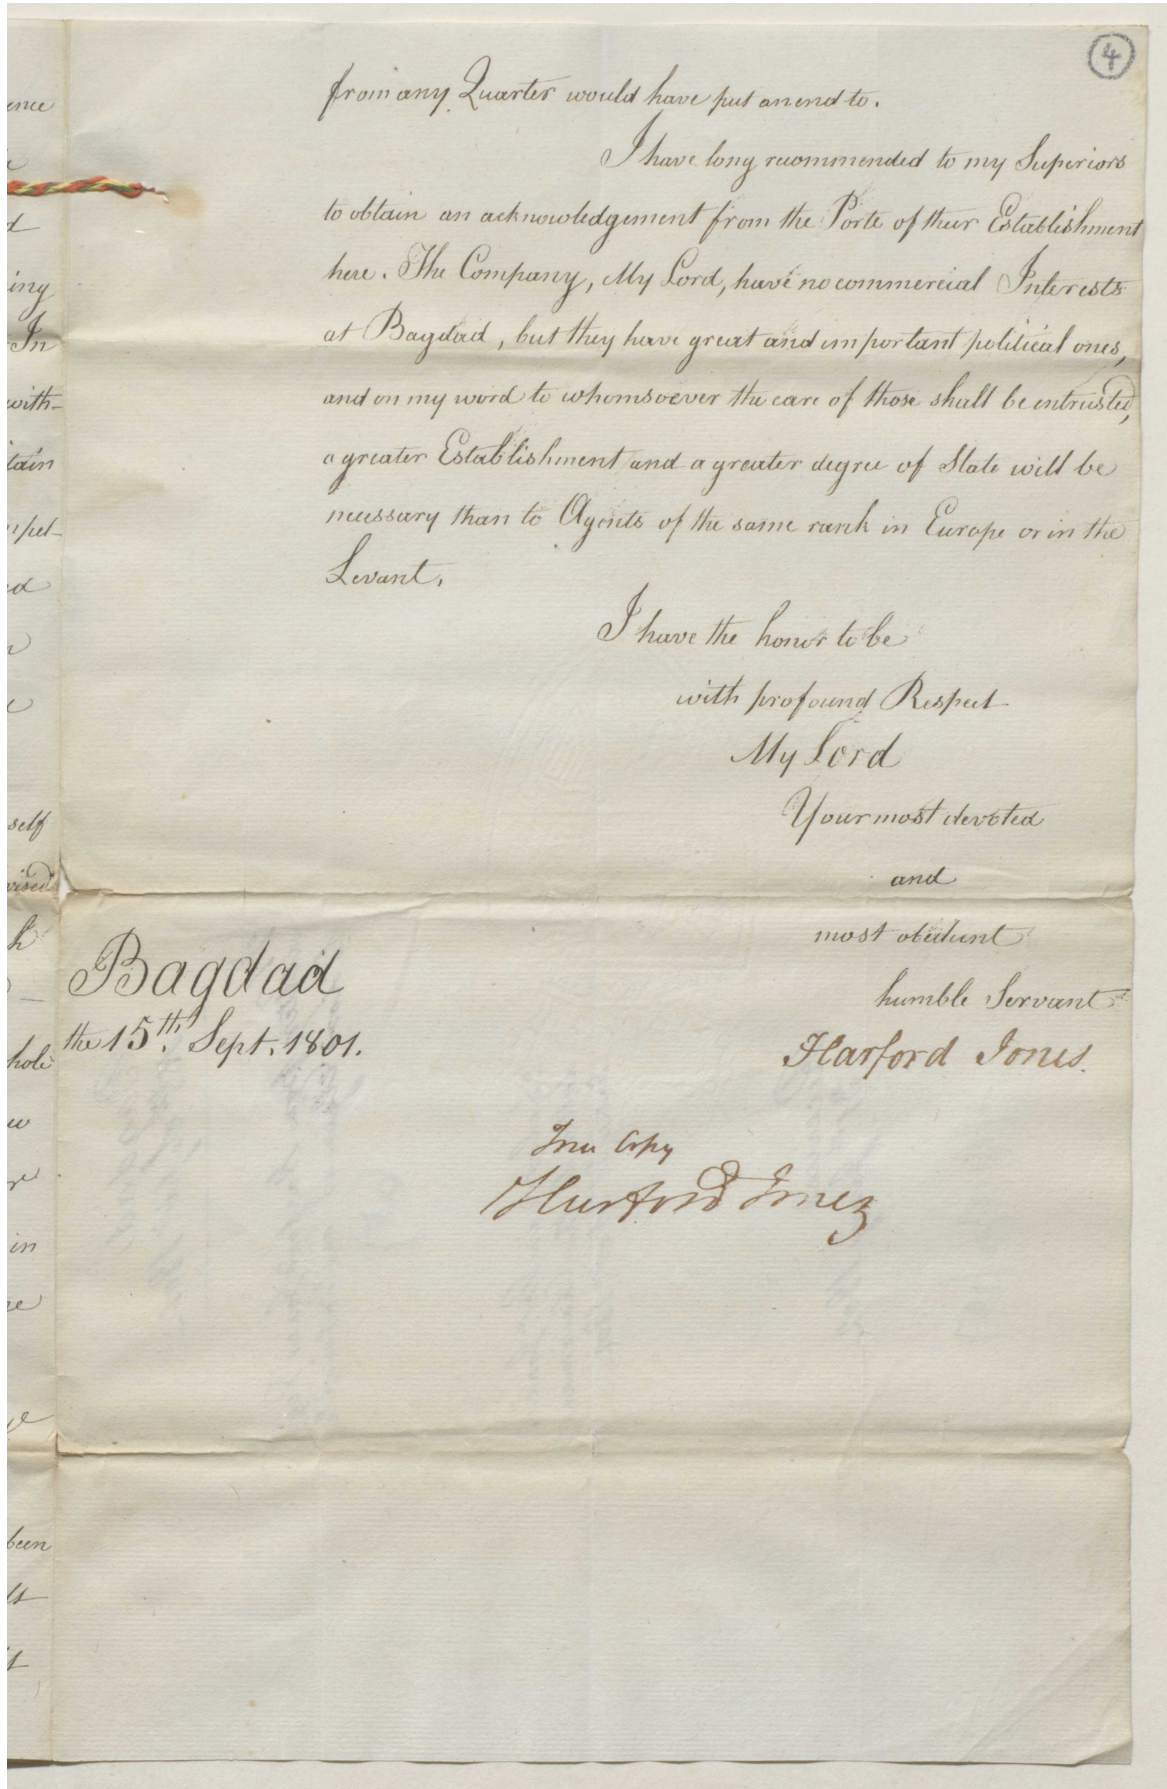 4
from any Quarter would have put an end to.
I have long recommended to my Superiors
to obtain an acknowledgement from the Porte of their Establishment
here. The Company, My Lord, have no commercial Interests
at Bagdad, but they have great and important political ones,
and on my word to whomsoever the care of those shall be entrusted,
a greater Establishment and a greater degree of State will be
necessary than to Agents of the same rank in Europe or in the
Levant.
I have the honor to be
with profound Respect
My Lord
Your most devoted
and
most obedient
humble Servant
Harford Jones.
Bagdad
the 15th. Sept. 1801.
True Copy
Harford Jones
ence
d
ing
In
with-
tain
pel-
ed
self
vised
h
hole
w
re
in
been